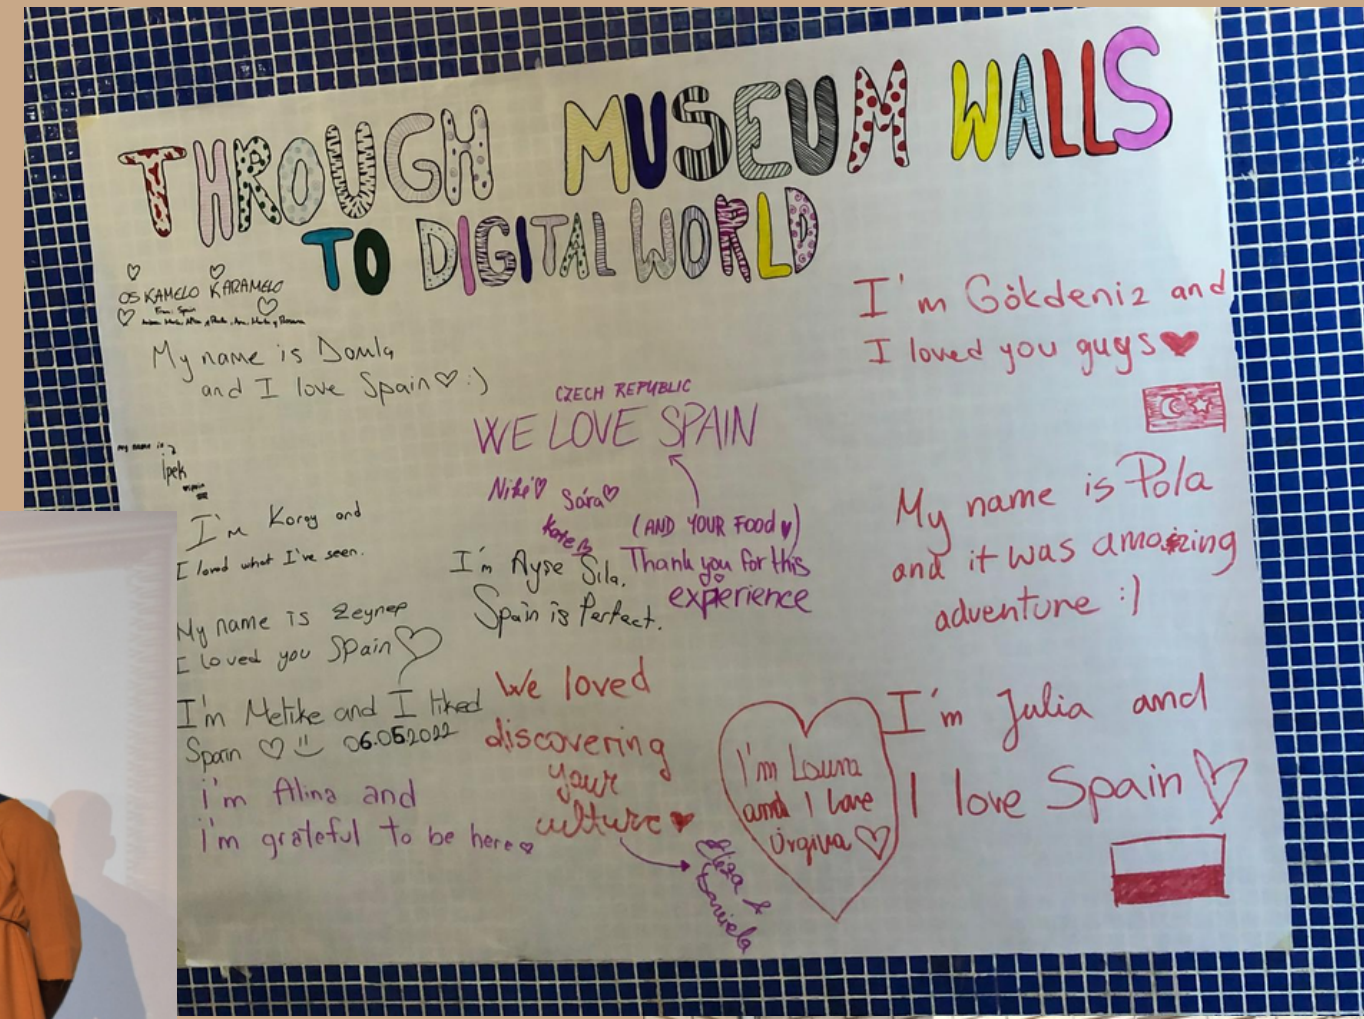 THROUGH MUSEUM WALLS
TO DIGITAL WORLD
OS KAMELO KARAMELO
From Spain
My name is Damla
and I love Spain♡:)
my name is
İpek
I'm Koray and
I loved what I've seen.
My name is Zeynep
I loved you Spain♡
I'm Melike and I liked
Spain ♡ 06.05.2022
i'm Alina and
i'm grateful to be here♡
CZECH REPUBLIC
WE LOVE SPAIN
Niki♡ Sára♡
Kate♡
(AND YOUR FOOD ♥)
Thank you for this
experience
I'm Ayşe Sıla.
Spain is Perfect.
We loved
discovering
your
culture♥
Eliza &
Daniela
I'm Gökdeniz and
I loved you guys♥
My name is Pola
and it was amazing
adventure :)
I'm Laura
and I love
Orgiva♡
I'm Julia and
I love Spain♡